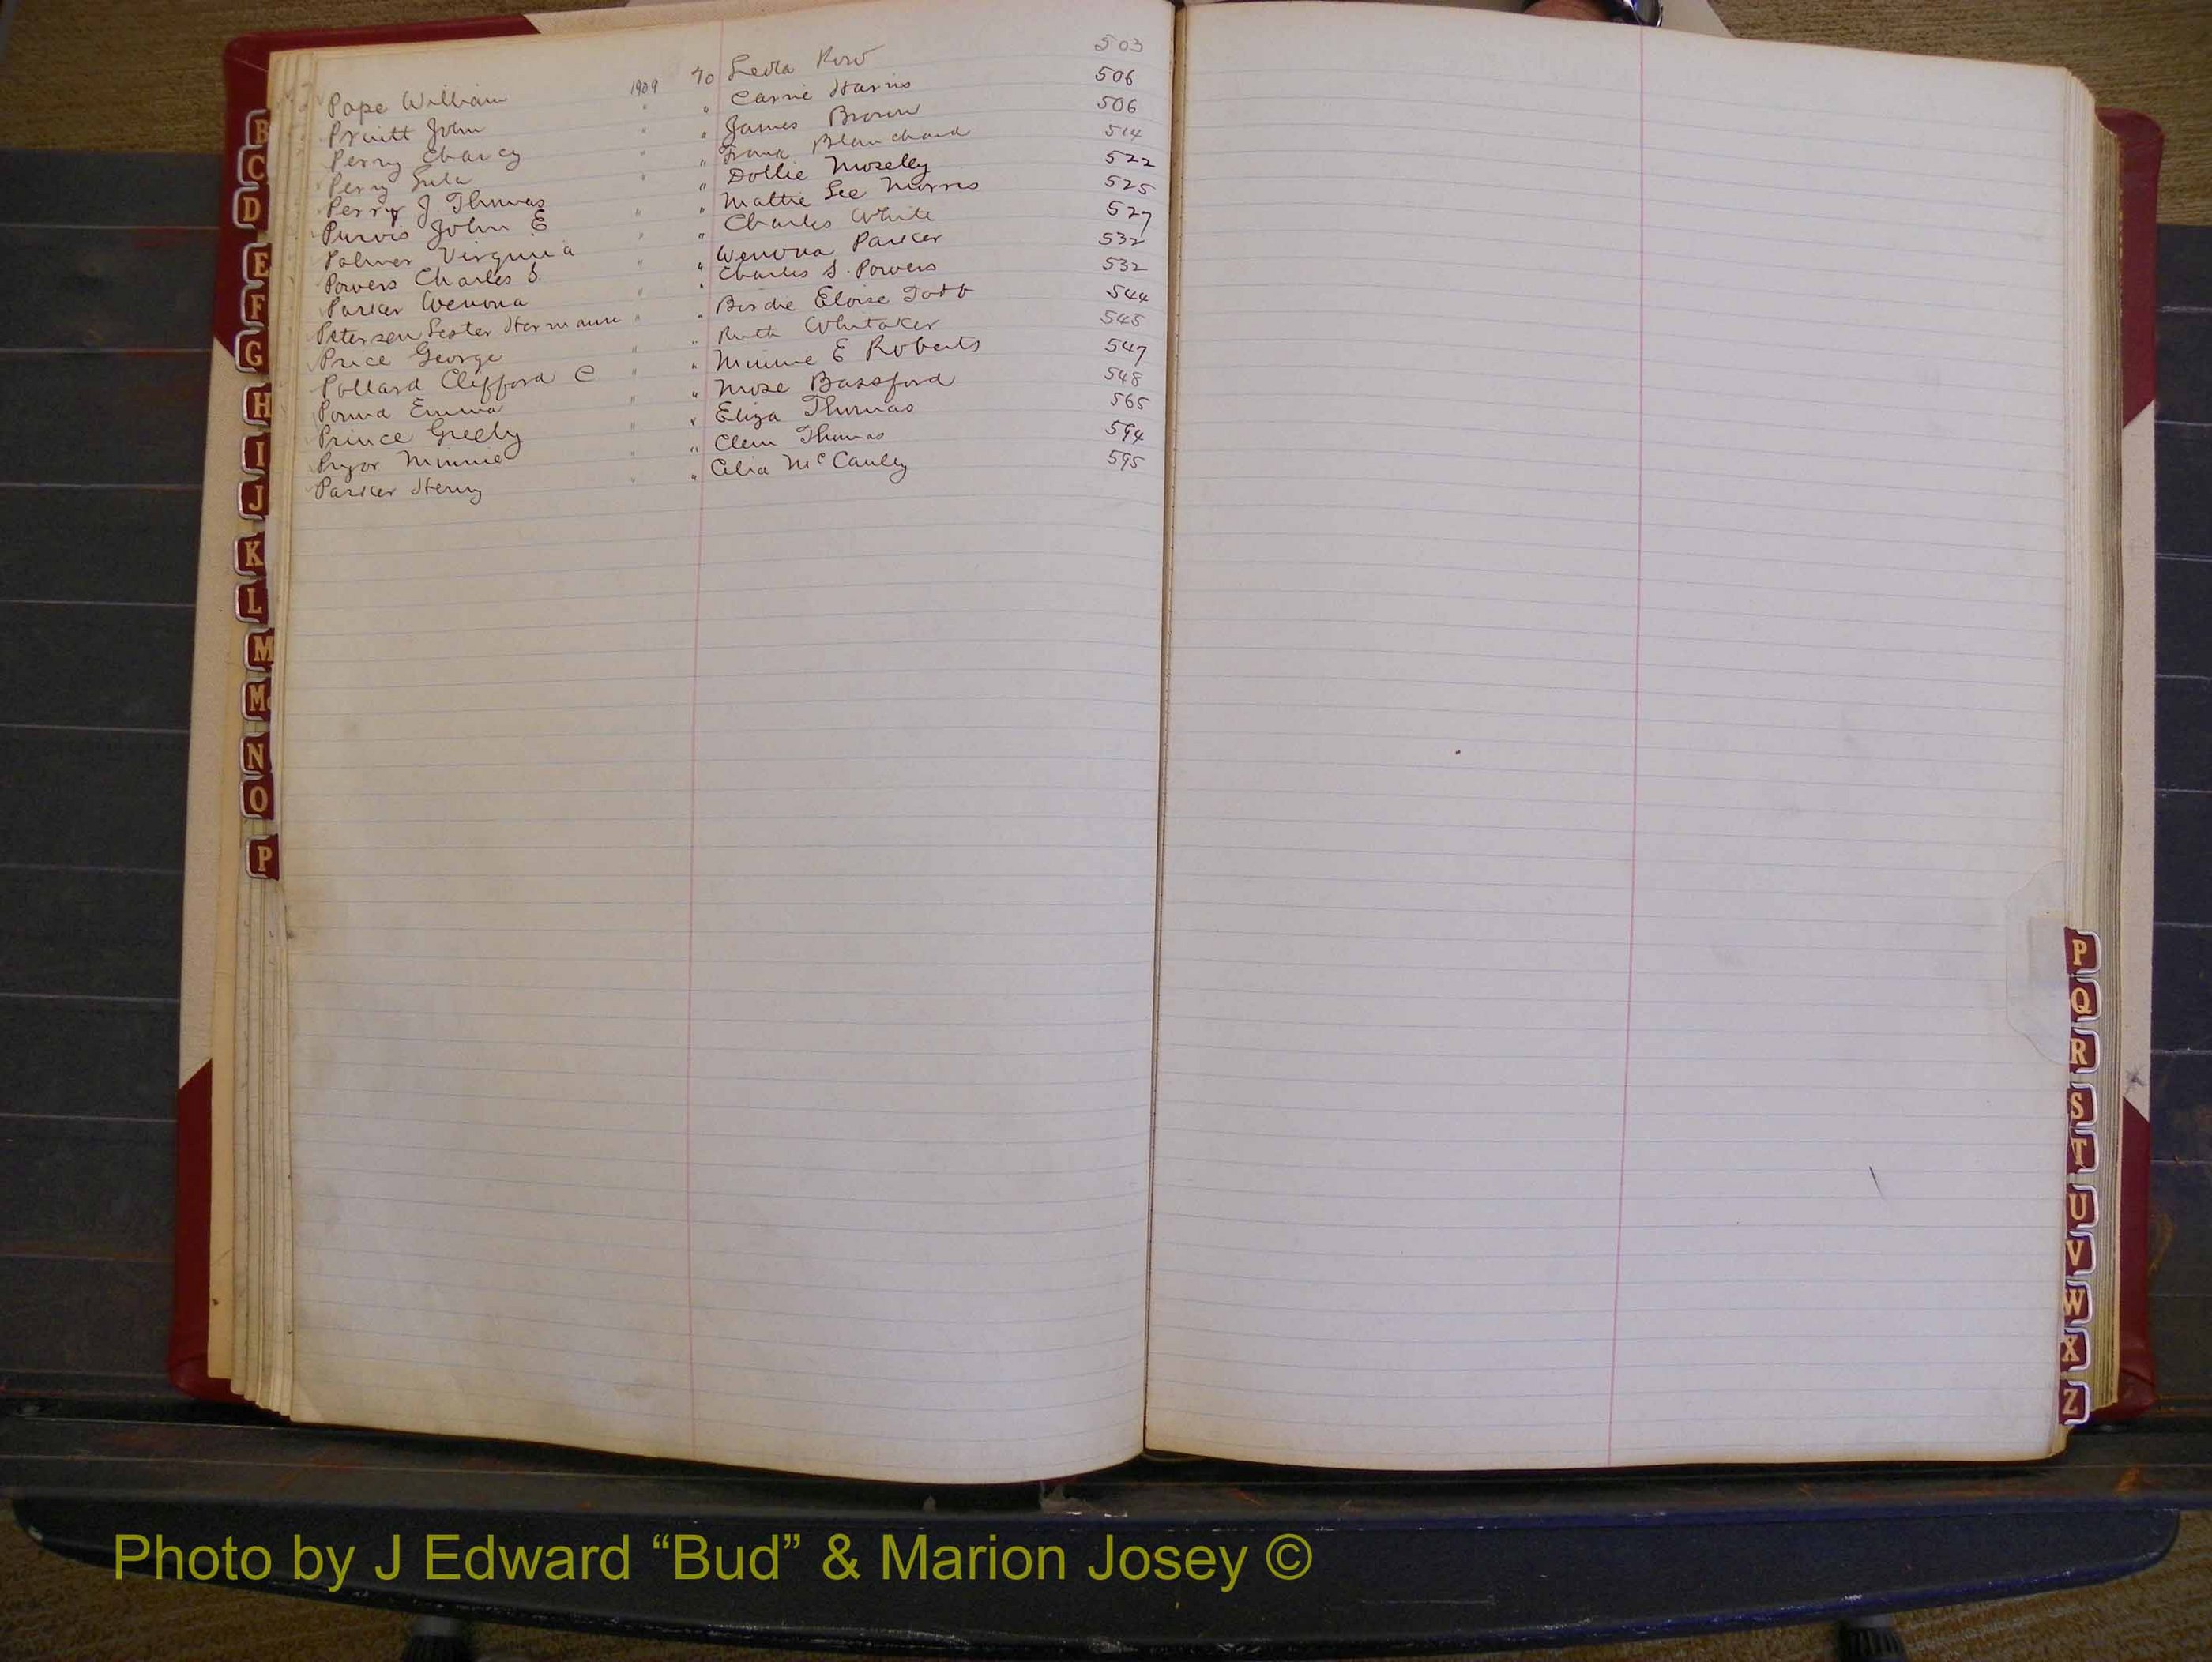 Pope William 1909 To Leola Row 503
Pruitt John " " Carrie Harris 506
Perry Chancy " " James Brown 506
Perry Lula " " Frank Blanchard 514
Perry J Thomas " " Dollie Moseley 522
Purvis John E " " Mattie Lee Morris 525
Palmer Virginia " " Charles White 527
Powers Charles S. " " Wenona Parker 532
Parker Wenona " " Charles S. Powers 532
Petersen Lester Hermann " " Birdie Eloise Todd 544
Price George " " Ruth Whitaker 545
Pollard Clifford C " " Minnie E Roberts 547
Pound Emma " " Mose Bassford 548
Prince Greely " " Eliza Thomas 565
Pryor Minnie " " Clem Thomas 594
Parker Henry " " Celia McCauley 595
B
C
D
E
F
G
H
I
J
K
L
M
Mc
N
O
P
P
Q
R
S
T
U
V
W
X
Z
Photo by J Edward “Bud” & Marion Josey ©